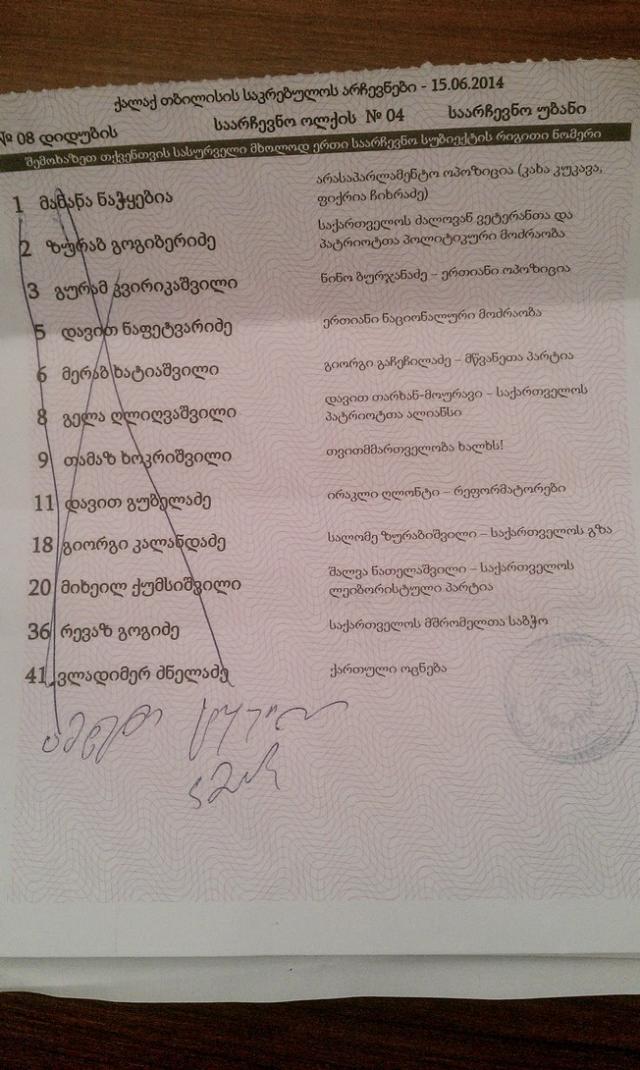 ქალაქ თბილისის საკრებულოს არჩევნები - 15.06.2014
№ 08 დიდუბის საარჩევნო ოლქის № 04 საარჩევნო უბანი
შემოხაზეთ თქვენთვის სასურველი მხოლოდ ერთი საარჩევნო სუბიექტის რიგითი ნომერი
1 მანანა ნაჭყებია
არასაპარლამენტო ოპოზიცია (კახა კუკავა,
ფიქრია ჩიხრაძე)
2 ზურაბ გოგიბერიძე
საქართველოს ძალოვან ვეტერანთა და
პატრიოტთა პოლიტიკური მოძრაობა
3 გურამ კვირიკაშვილი
ნინო ბურჯანაძე – ერთიანი ოპოზიცია
5 დავით ნაფეტვარიძე
ერთიანი ნაციონალური მოძრაობა
6 მერაბ ხატიაშვილი
გიორგი გაჩეჩილაძე – მწვანეთა პარტია
8 გელა ღლიღვაშვილი
დავით თარხან-მოურავი – საქართველოს
პატრიოტთა ალიანსი
9 თამაზ ხოკრიშვილი
თვითმმართველობა ხალხს!
11 დავით გუბელაძე
ირაკლი ღლონტი – რეფორმატორები
18 გიორგი კალანდაძე
სალომე ზურაბიშვილი – საქართველოს გზა
20 მიხეილ ქუმსიშვილი
შალვა ნათელაშვილი – საქართველოს
ლეიბორისტული პარტია
36 რევაზ გოგიძე
საქართველოს მშრომელთა საბჭო
41 ვლადიმერ ძნელაძე
ქართული ოცნება